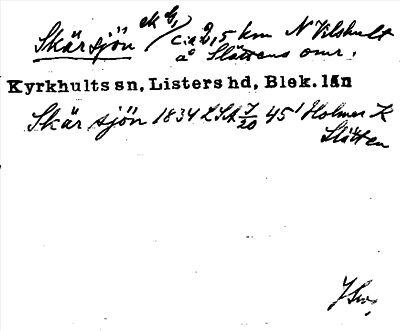 Skärsjön ek G, cirka 2,5 km N Vilshult
å Slättens omr.
Kyrkhults sn, Listers hd, Blek. län
Skärsjön 1834 LSA 7/20 45' Holmer K
Slätten